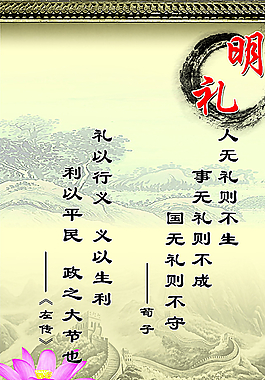 明礼
人无礼则不生
事无礼则不成
国无礼则不守
——荀子
礼以行义 义以生利
利以平民 政之大节也
——《左传》